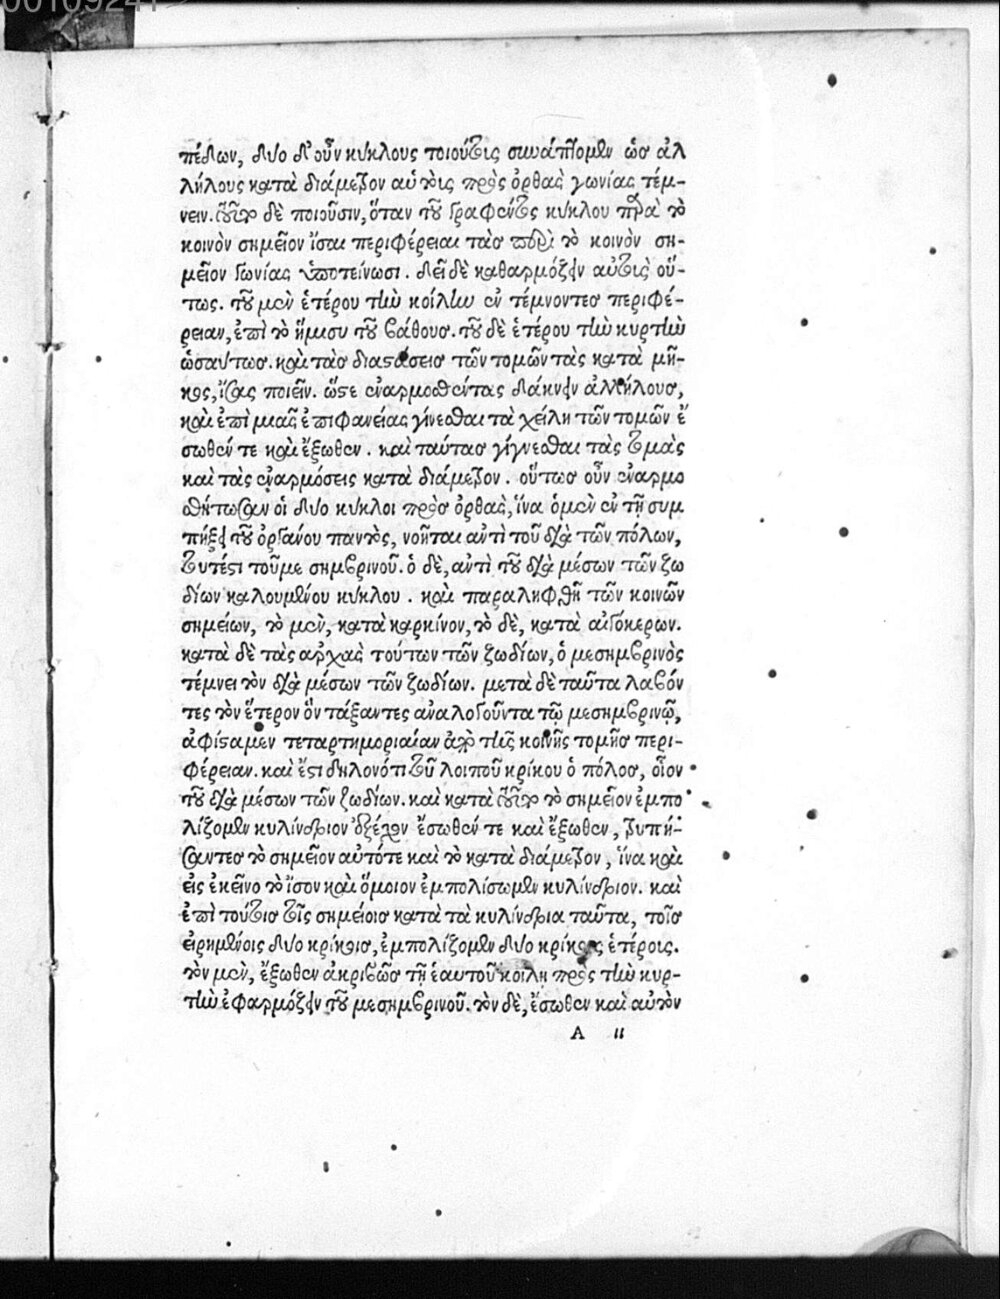 00109241
πέδων, δύο δ' οὖν κύκλους τοιούτοις συνάπτομεν ὡς ἀλ
λήλους κατὰ διάμετρον αὐτοῖς πρὸς ὀρθὰς γωνίας τέμ-
νειν. τοῦτο δὲ ποιοῦσιν, ὅταν τοῦ γραφέντος κύκλου παρὰ τὸ
κοινὸν σημεῖον ἴσαι περιφέρειαι τὰς περὶ τὸ κοινὸν ση-
μεῖον γωνίας ὑποτείνωσι. δεῖ δὲ καθαρμόζειν αὐτοὺς οὕ-
τως. τοῦ μὲν ἑτέρου τὴν κοίλην ἐν τέμνοντες περιφέ-
ρειαν, ἐπὶ τὸ ἥμισυ τοῦ βάθους. τοῦ δὲ ἑτέρου τὴν κυρτὴν
ὡσαύτως. καὶ τὰς διαστάσεις τῶν τομῶν τὰς κατὰ μῆ-
κος, ἴσας ποιεῖν. ὥστε ἐναρμοσθέντας δάκνειν ἀλλήλους,
καὶ ἐπὶ μιᾶς ἐπιφανείας γίνεσθαι τὰ χείλη τῶν τομῶν ἔ
σωθέν τε καὶ ἔξωθεν. καὶ ταύτας γίγνεσθαι τὰς τομὰς
καὶ τὰς ἐναρμόσεις κατὰ διάμετρον. οὕτως οὖν ἐναρμο
σθήτωσαν οἱ δύο κύκλοι πρὸς ὀρθὰς, ἵνα ὁ μὲν ἐν τῇ συμ
πήξει τοῦ ὀργάνου παντὸς, νοῆται ἀντὶ τοῦ διὰ τῶν πόλων,
τουτέστι τοῦ μεσημβρινοῦ. ὁ δὲ, ἀντὶ τοῦ διὰ μέσων τῶν ζω
δίων καλουμένου κύκλου. καὶ παραληφθῇ τῶν κοινῶν
σημείων, τὸ μὲν, κατὰ καρκίνον, τὸ δὲ, κατὰ αἰγόκερων.
κατὰ δὲ τὰς ἀρχὰς τούτων τῶν ζωδίων, ὁ μεσημβρινὸς
τέμνει τὸν διὰ μέσων τῶν ζωδίων. μετὰ δὲ ταῦτα λαβόν
τες τὸν ἕτερον ὃν τάξαντες ἀναλογοῦντα τῷ μεσημβρινῷ,
ἀφίσαμεν τεταρτημοριαίαν ἀπὸ τῆς κοινῆς τομῆς περι-
φέρειαν. καὶ ἔστι δηλονότι τοῦ λοιποῦ κρίκου ὁ πόλος, οἷον
τοῦ διὰ μέσων τῶν ζωδίων. καὶ κατὰ τοῦτο τὸ σημεῖον ἐμπο
λίζομεν κυλίνδριον ἐξέχον ἔσωθέν τε καὶ ἔξωθεν, τρυπή-
σαντες τὸ σημεῖον αὐτό τε καὶ τὸ κατὰ διάμετρον, ἵνα καὶ
εἰς ἐκεῖνο τὸ ἴσον καὶ ὅμοιον ἐμπολίσωμεν κυλίνδριον. καὶ
ἐπὶ τούτοις τοῖς σημείοις κατὰ τὰ κυλίνδρια ταῦτα, τοῖς
εἰρημένοις δύο κρίκοις, ἐμπολίζομεν δύο κρίκους ἑτέροις.
τὸν μὲν, ἔξωθεν ἀκριβῶς τῇ ἑαυτοῦ κοίλῃ πρὸς τὴν κυρ-
τὴν ἐφαρμόζειν τοῦ μεσημβρινοῦ. τὸν δὲ, ἔσωθεν καὶ αὐτὸν
A ii